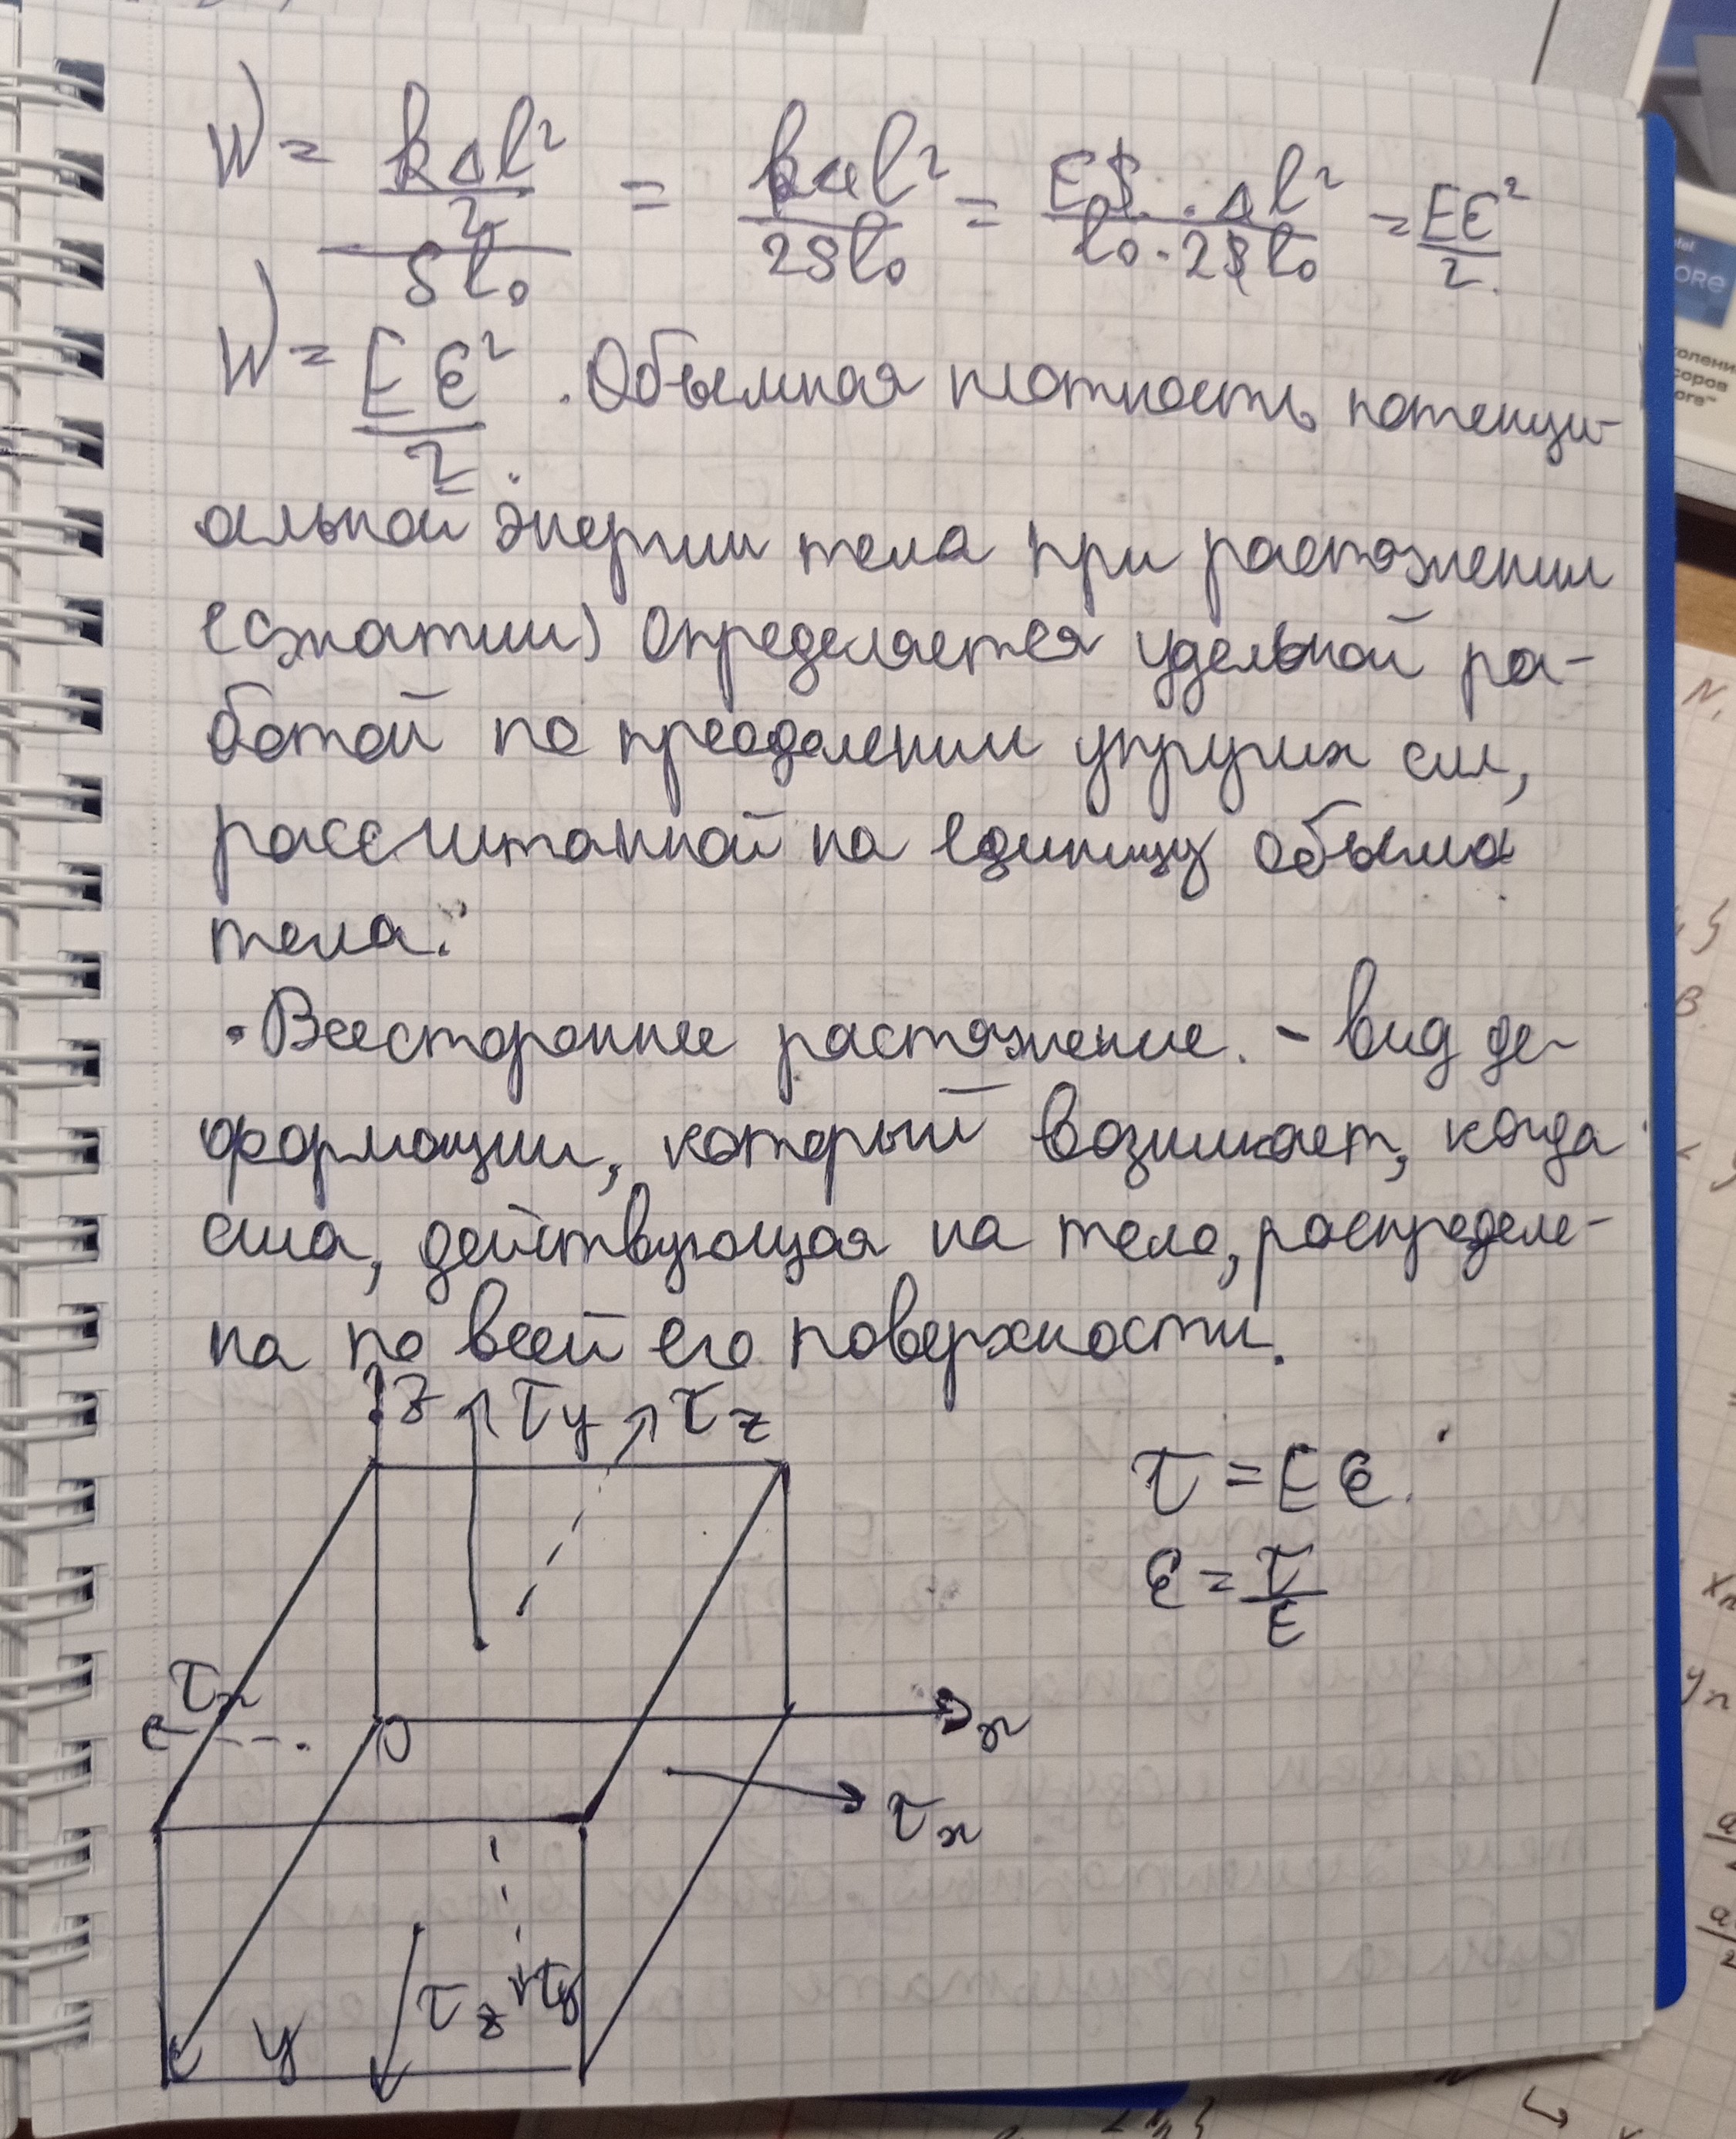 W = (kΔl²/2)/(Sl₀) = kΔl²/(2Sl₀) = (ES · Δl²)/(l₀ · 2Sl₀) = Eε²/2
W = Eε²/2. Объёмная плотность потенци-
альной энергии тела при растяжении
(сжатии) определяется удельной ра-
ботой по преодолении упругих сил,
рассчитанной на единицу объёма
тела.
• Всестороннее растяжение. – вид де-
формации, который возникает, когда
сила, действующая на тело, распределе-
на по всей его поверхности.
z τy τz
τ = Eε.
ε = τ/E
τx
O
x
τx
τz τy
y